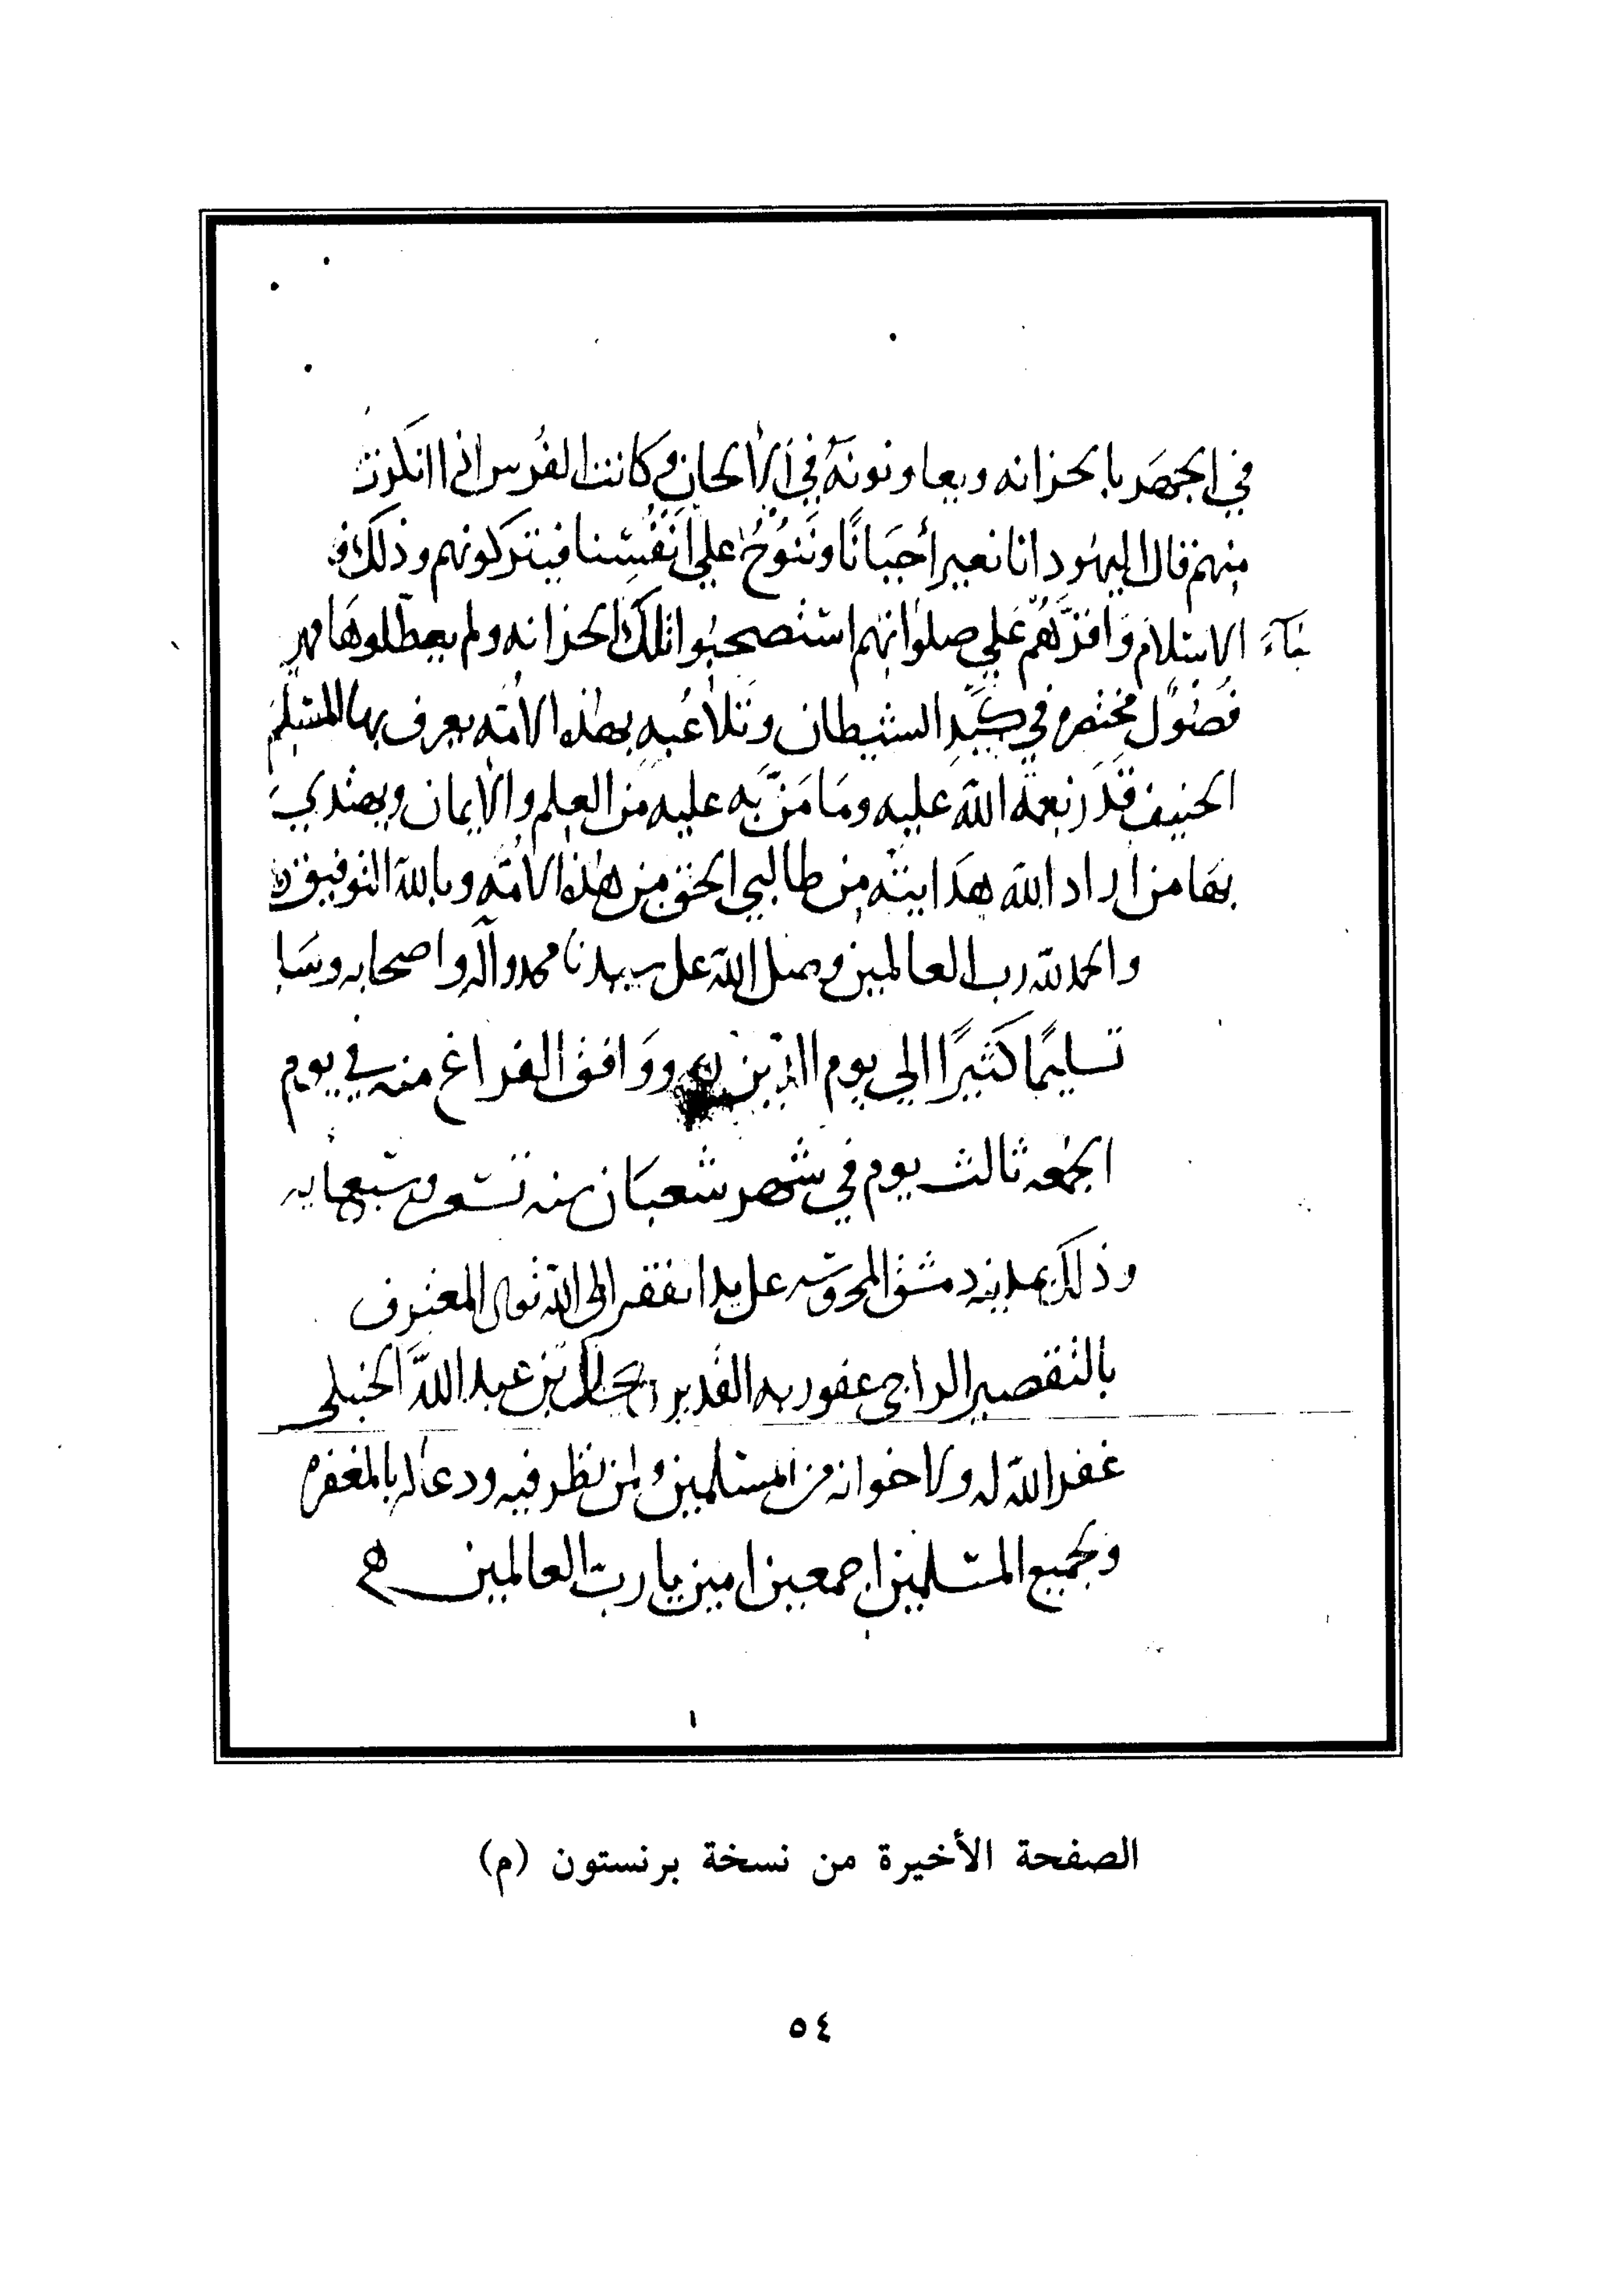 في الجهر بالحزانه ويعاونونه في الالحان وكانت الفرس اذا انكرت
منهم قال اليهود انا نغير أحيانًا ونَنُوحُ علي انفُسِنا فيتركونهم وذلك
جآء الاسلام واقرَّهم علي صلواتهم استصحبوا تلك الحزانه ولم يعطلوها فهذه
فصُول مختصره في كيد الشيطان وتلاعُبه بهذه الامّه يعرف بها المسلم
الحنيف قدر نعمة الله عليه وما مَنّ به عليه من العلم والايمان ويهتدي
بها من اراد الله هدايته من طالبي الحق من هذه الامّه وبالله التوفيق
والحمد لله رب العالمين وصلى الله على سيدنا محمد وآله واصحابه وسلم
تسليمًا كثيرًا الي يوم الدين ووافق الفراغ منه في يوم
الجمعه ثالث يوم في شهر شعبان سنه تسع وسبعمايه
وذلك بمدينه دمشق المحروسه على يد افقر الى الله تعالى المعترف
بالتقصير الراجي عفو ربه القدير بن عبد الله الحنبلي
غفر الله له ولاخوانه من المسلمين ولمن نظر فيه ودعا له بالمغفره
ولجميع المسلمين اجمعين امين يا رب العالمين
الصفحة الأخيرة من نسخة برنستون (م)
٥٤